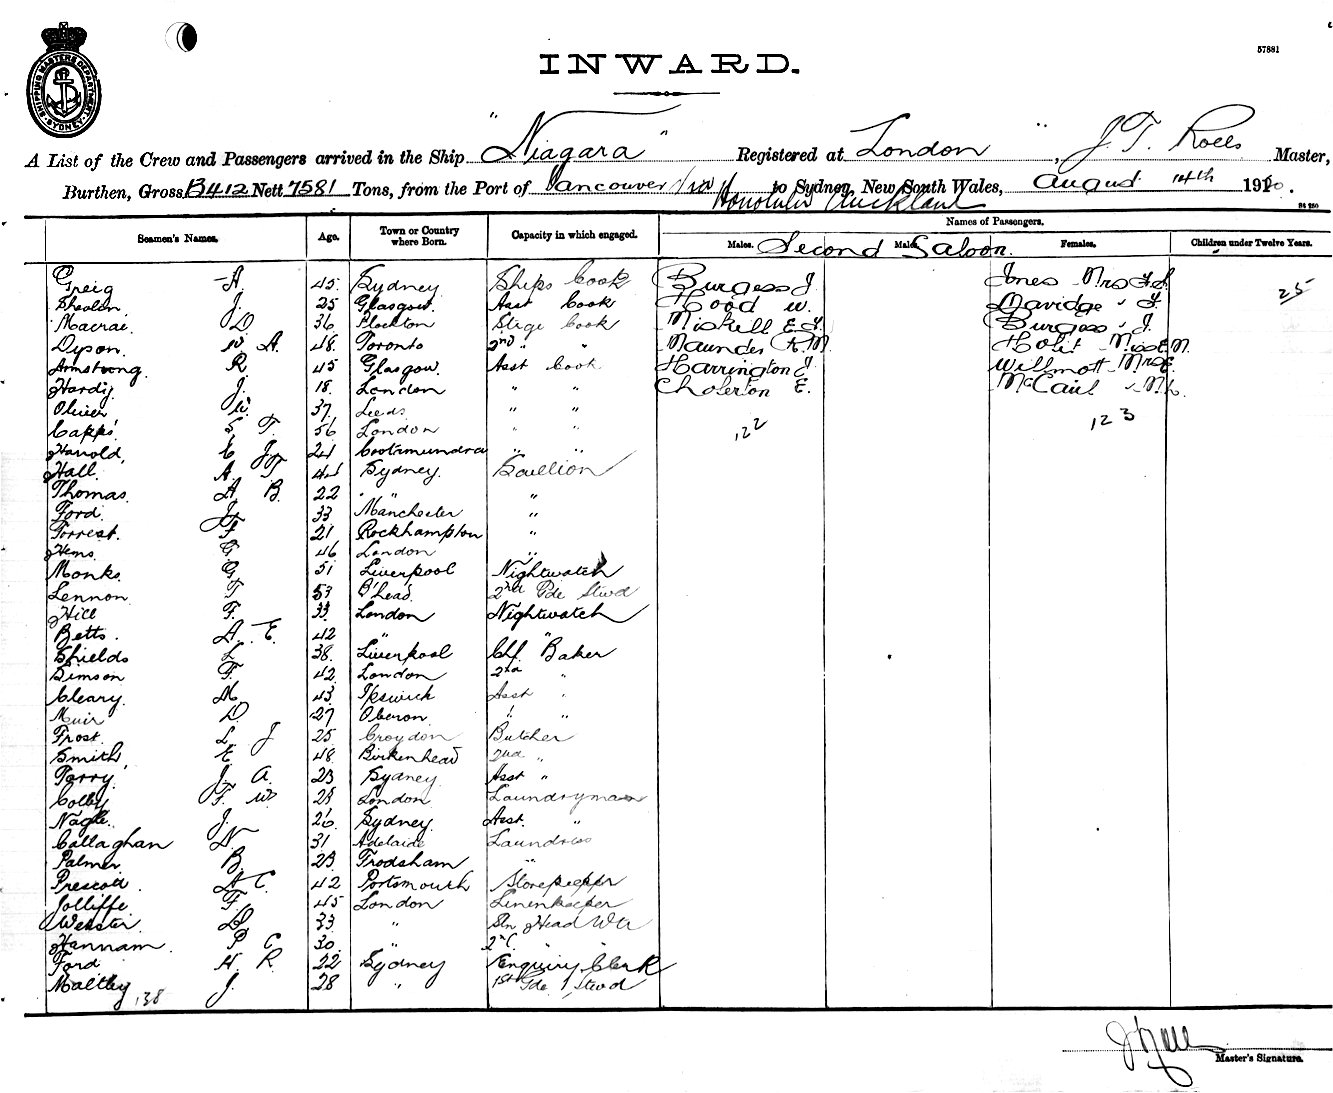 57881
SHIPPING MASTERS DEPARTMENT SYDNEY
INWARD.
A List of the Crew and Passengers arrived in the Ship "Niagara" Registered at London, J. T. Rolls Master,
Burthen, Gross 13412 Nett 7581 Tons, from the Port of Vancouver via Honolulu Auckland to Sydney, New South Wales, August 14th 1920.
Seamen's Names. Age. Town or Country where Born. Capacity in which engaged. Names of Passengers.
Males. Males. Females. Children under Twelve Years.
Second Saloon.
Greig A. 45 Sydney Ships Cook Burgess J. Jones Mrs F.S. 25
J. 25 Glasgow Asst Cook Hood W. Davidge " F.
Macrae D 36 Plockton Stge Cook Miskell E. J. Burgess " J.
Dyson W A. 48 Toronto 2nd " " Maunder R.M. Holit Miss E.M.
Armstrong R 45 Glasgow Asst Cook Harrington J. Willmott Mrs E.
Hardy J. 18 London " " Cholerton E. McCaul " M.L.
Oliver W. 37 Leeds " "
Capps S T. 56 London " " 122 123
Harold, E J 21 Cootamundra " "
Hall A. T 41 Sydney Scullion
Thomas A B. 22 " "
Ford J. 33 Manchester "
Forrest F 21 Rockhampton "
Hems G 46 London "
Monks G 51 Liverpool Nightwatch
Lennon T 53 B'head 2nd Gde Stwd
Hill F. 33 London Nightwatch
Betts A. E. 42 " "
Shields L. 38 Liverpool Chf Baker
Simson F. 42 London 2nd "
Cleary M 43 Ipswich Asst "
Muir D 27 Oberon " "
Frost L J 25 Croydon Butcher
Smith, E 48 Birkenhead 2nd "
Parry J. A. 23 Sydney Asst "
Colby F. W 28 London Laundryman
Nagle J. 26 Sydney Asst. "
Callaghan N 31 Adelaide Laundress
Palmer B. 23 Frodsham "
Prescott A C. 42 Portsmouth Storekeeper
Jolliffe F. 45 London Linenkeeper
Webster D 33 " Sln Head Wtr
Hannam P C 30 " 2nd " "
Ford H R 22 Sydney Enquiry Clerk
Maltby J. 28 " 1st Gde Stwd
138
Master's Signature.